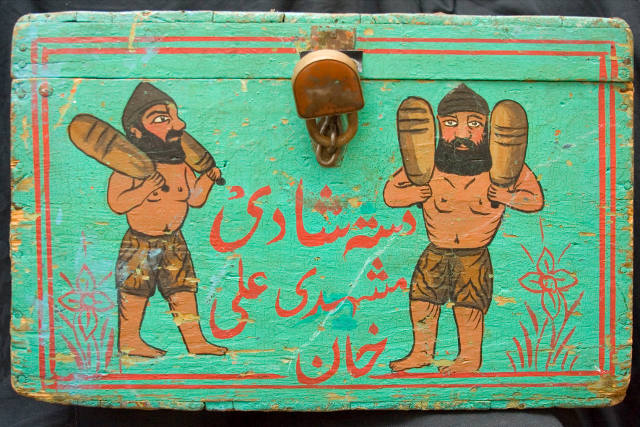 دسته شادی
مشهدی علی
خان